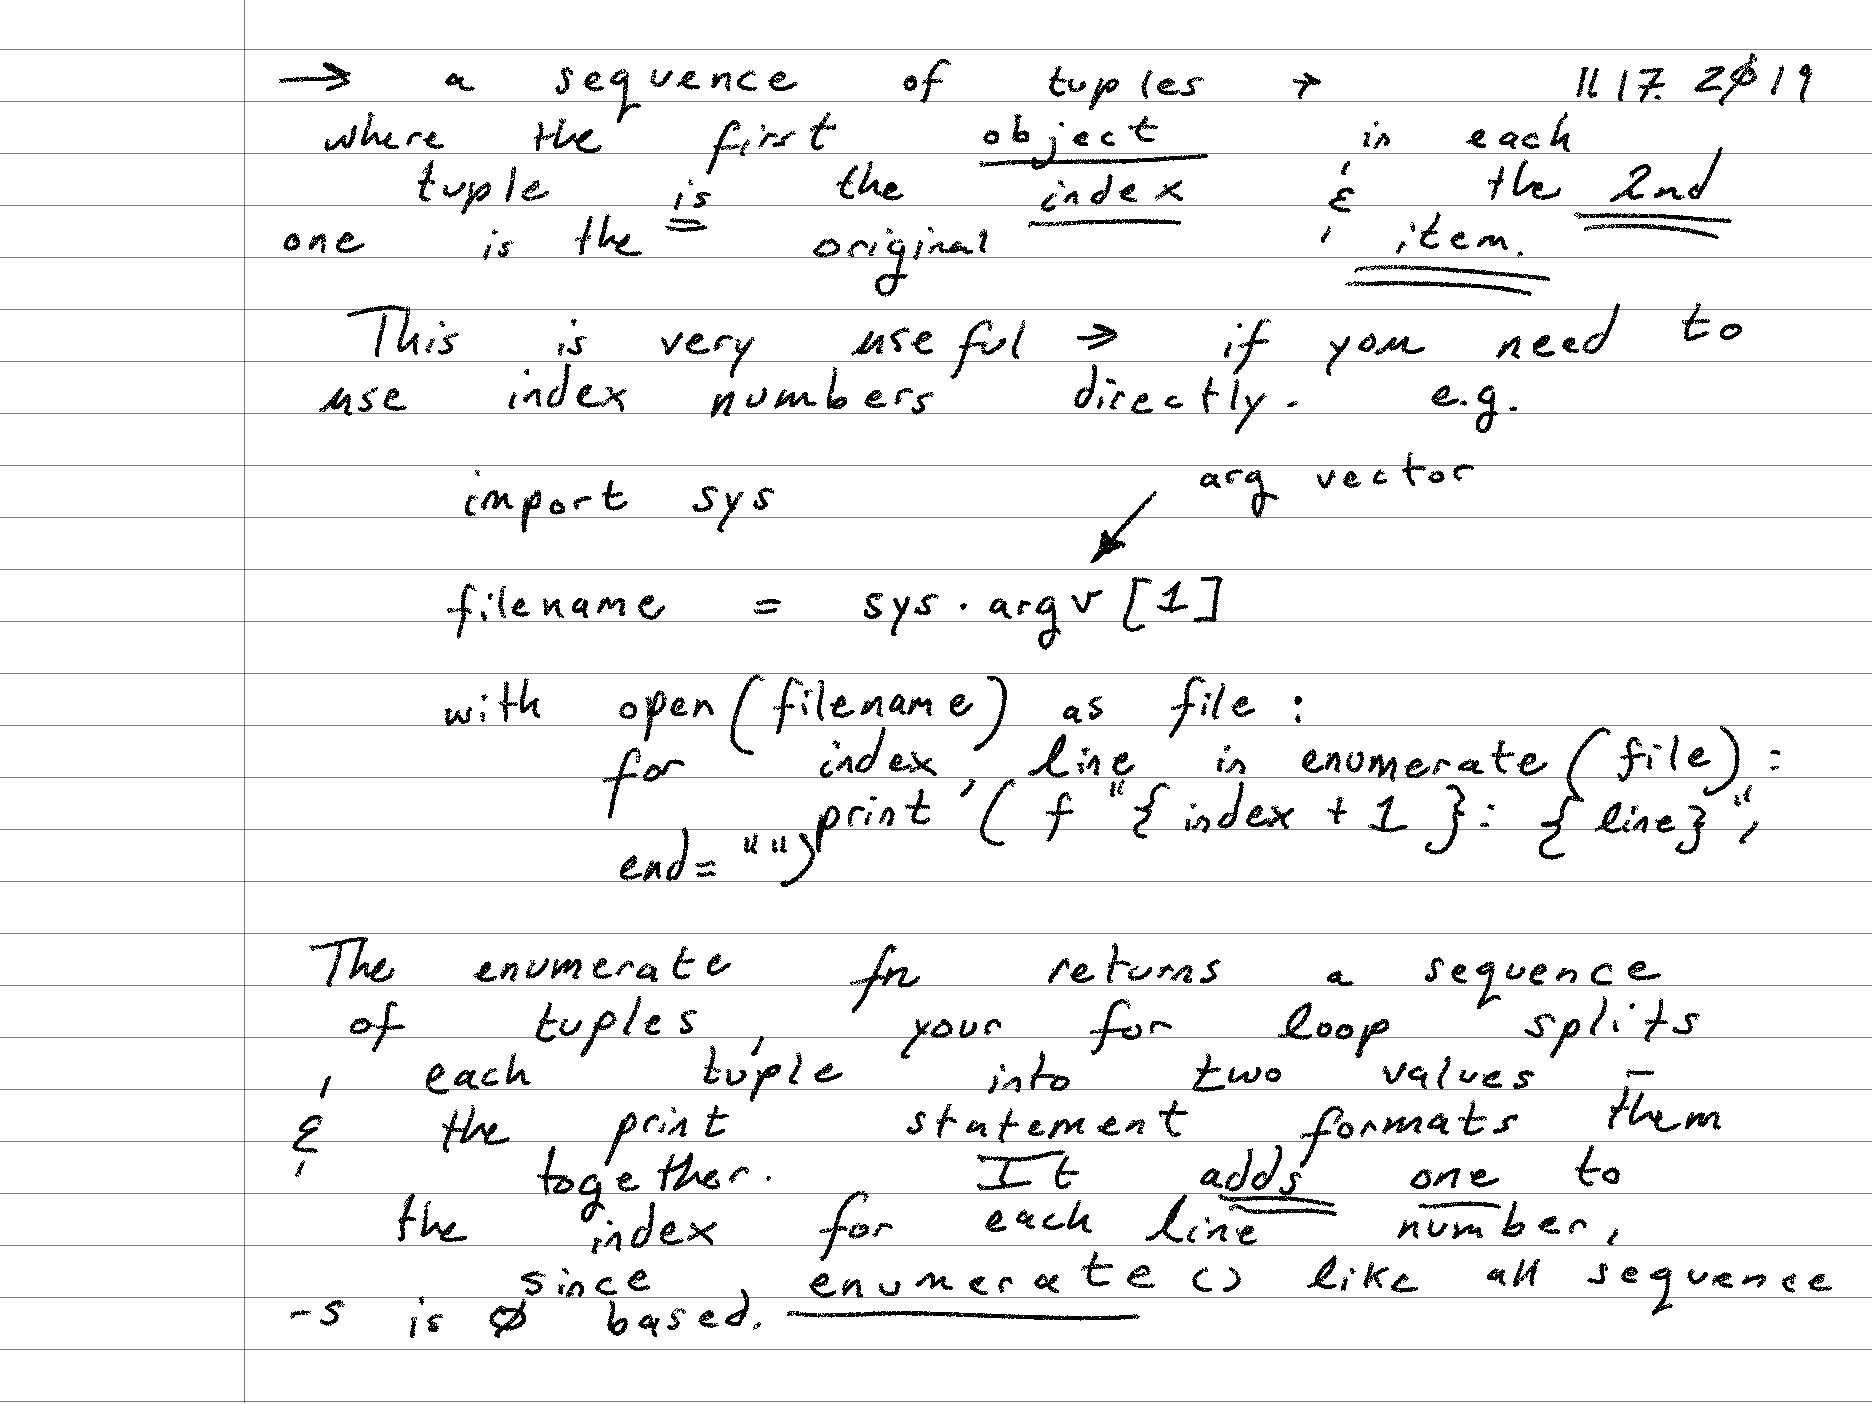 → a sequence of tuples → 11.17.2019
where the first object in each
tuple is the index & the 2nd
one is the original item.
This is very useful → if you need to
use index numbers directly. e.g.
arg vector
import sys
filename = sys.argv[1]
with open(filename) as file:
for index, line in enumerate(file):
print(f"{index + 1}: {line}",
end="")
The enumerate fn returns a sequence
of tuples, your for loop splits
each tuple into two values –
& the print statement formats them
together. It adds one to
the index for each line number,
since enumerate() like all sequence
-s is 0 based.